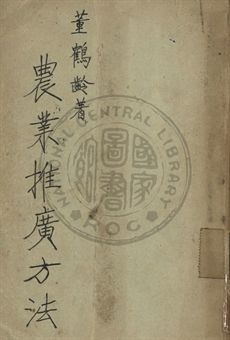 董鶴齡著
農業推廣方法
NATIONAL CENTRAL LIBRARY
ROC
國家
圖書
館